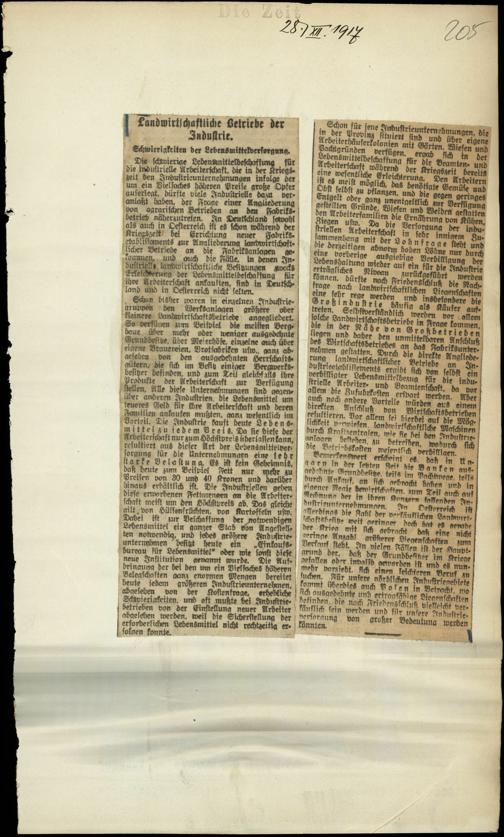 Die Zeit
28./XII. 1917
205
Landwirtschaftliche Betriebe der
Industrie.
Schwierigkeiten der Lebensmittelversorgung.
Die schwierige Lebensmittelbeschaffung für
die industrielle Arbeiterschaft, die in der Kriegs-
zeit den Industrieunternehmungen infolge der
um ein Vielfaches höheren Preise große Opfer
auferlegt, dürfte viele Industrielle dazu ver-
anlaßt haben, der Frage einer Angliederung
von agrarischen Betrieben an den Fabriks-
betrieb näherzutreten. In Deutschland sowohl
als auch in Oesterreich ist es schon während der
Kriegszeit bei Errichtung neuer Fabriks-
etablissements zur Angliederung landwirtschaft-
licher Betriebe an die Fabrikanlagen ge-
kommen, und auch die Fälle, in denen In-
dustrielle landwirtschaftliche Besitzungen zwecks
Erleichterung der Lebensmittelbeschaffung für
ihre Arbeiterschaft ankauften, sind in Deutsch-
land und in Oesterreich nicht selten.
Schon bisher waren in einzelnen Industrie-
gruppen den Werksanlagen größere oder
kleinere Landwirtschaftsbetriebe angegliedert.
So verfügen zum Beispiel die meisten Berg-
baue über mehr oder weniger ausgedehnte
Grundbesitze, über Meierhöfe, einzelne auch über
eigene Brauereien, Brotfabriken usw., ganz ab-
gesehen von den ausgedehnten Herrschafts-
gütern, die sich im Besitz einiger Bergwerks-
besitzer befinden, und zum Teil gleichfalls ihre
Produkte der Arbeiterschaft zur Verfügung
stellen. Alle diese Unternehmungen sind gegen-
über anderen Industrien, die Lebensmittel um
teueres Geld für ihre Arbeiterschaft und deren
Familien ankaufen mußten, ganz wesentlich im
Vorteil. Die Industrie kauft heute Lebens-
mittel zu jedem Preis. Da sie diese der
Arbeiterschaft nur zum Höchstpreis überlassen kann,
resultiert aus dieser Art der Lebensmittelver-
sorgung für die Unternehmungen eine sehr
starke Belastung. Es ist kein Geheimnis,
daß heute zum Beispiel Fett nur mehr zu
Preisen von 30 und 40 Kronen und darüber
hinaus erhältlich ist. Die Industriellen geben
diese erworbenen Fettwaren an die Arbeiter-
schaft meist um den Höchstpreis ab. Das gleiche
gilt von Hülsenfrüchten, von Kartoffeln usw.
Dabei ist zur Beschaffung der notwendigen
Lebensmittel ein ganzer Stab von Angestell-
ten notwendig, und jedes größere Industrie-
unternehmen besitzt heute ein „Einkaufs-
bureau für Lebensmittel“ oder wie sonst diese
neue Institution genannt wurde. Die Auf-
bringung der bei den um ein Vielfaches höheren
Belegschaften ganz enormen Mengen bereitet
heute jedem größeren Industrieunternehmen,
abgesehen von der Kostenfrage, erhebliche
Schwierigkeiten, und oft mußte bei Industrie-
betrieben von der Einstellung neuer Arbeiter
abgesehen werden, weil die Sicherstellung der
erforderlichen Lebensmittel nicht rechtzeitig er-
folgen konnte.
Schon für jene Industrieunternehmungen, die
in der Provinz situiert sind und über eigene
Arbeiterhäuserkolonien mit Gärten, Wiesen und
Pachtgründen verfügen, ergab sich in der
Lebensmittelbeschaffung für die Beamten- und
Arbeiterschaft während der Kriegszeit bereits
eine wesentliche Erleichterung. Den Arbeitern
ist es meist möglich, das benötigte Gemüse und
Obst selbst zu pflanzen, und die gegen geringes
Entgelt oder ganz unentgeltlich zur Verfügung
gestellten Gründe, Wiesen und Weiden gestatten
den Arbeiterfamilien die Ernährung von Kühen,
Ziegen usw. Da die Versorgung der indu-
striellen Arbeiterschaft in sehr innigem Zu-
sammenhang mit der Lohnfrage steht und
die derzeitigen abnorm hohen Löhne nur durch
eine vorherige ausgiebige Verbilligung der
Lebenshaltung wieder auf ein für die Industrie
erträgliches Niveau zurückgeführt werden
können, dürfte nach Friedensschluß die Nach-
frage nach landwirtschaftlichen Liegenschaften
eine sehr rege werden und insbesondere die
Großindustrie häufig als Käufer auf-
treten. Selbstverständlich werden vor allem
solche Landwirtschaftsbetriebe in Frage kommen,
die in der Nähe von Großbetrieben
liegen und daher den unmittelbaren Anschluß
des Wirtschaftsbetriebes an das Fabriksunter-
nehmen gestatten. Durch die direkte Angliede-
rung landwirtschaftlicher Betriebe an die
Industrieetablissements ergibt sich von selbst ein
verbilligter Lebensmittelbezug für die indu-
strielle Arbeiter- und Beamtenschaft, da vor
allem die Zufuhrkosten erspart werden. Aber
auch noch andere Vorteile würden aus einem
direkten Anschluß von Wirtschaftsbetrieben
resultieren. Vor allem sei hierbei auf die Mög-
lichkeit verwiesen, landwirtschaftliche Maschinen
durch Kraftzentralen, wie sie bei den Industrie-
anlagen bestehen, zu betreiben, wodurch sich
die Betriebskosten wesentlich verbilligen.
Bemerkenswert erscheint es, daß in Un-
garn in der letzten Zeit die Banken aus-
gedehnte Grundbesitze, teils im Pachtwege, teils
durch Ankauf, an sich gebracht haben und in
eigener Regie bewirtschaften, zum Teil auch auf
Rechnung der in ihrem Konzern stehenden In-
dustrieunternehmungen. In Oesterreich ist
allerdings die Zahl der verkäuflichen Landwirt-
schaftsbesitze weit geringer, doch hat es gerade
der Krieg mit sich gebracht, daß eine nicht
geringe Anzahl größerer Liegenschaften zum
Verkauf steht. In vielen Fällen ist der Haupt-
grund der, daß der Grundbesitzer im Kriege
gefallen oder invalid geworden ist und es nun-
mehr vorzieht, sich einen leichteren Beruf zu
suchen. Für unsere nördlichen Industriegebiete
kommt überdies auch Polen in Betracht, wo
sich ausgedehnte und ertragfähige Liegenschaften
befinden, die nach Friedensschluß vielleicht ver-
käuflich sein werden und für unsere Industrie-
versorgung von großer Bedeutung werden
könnten.